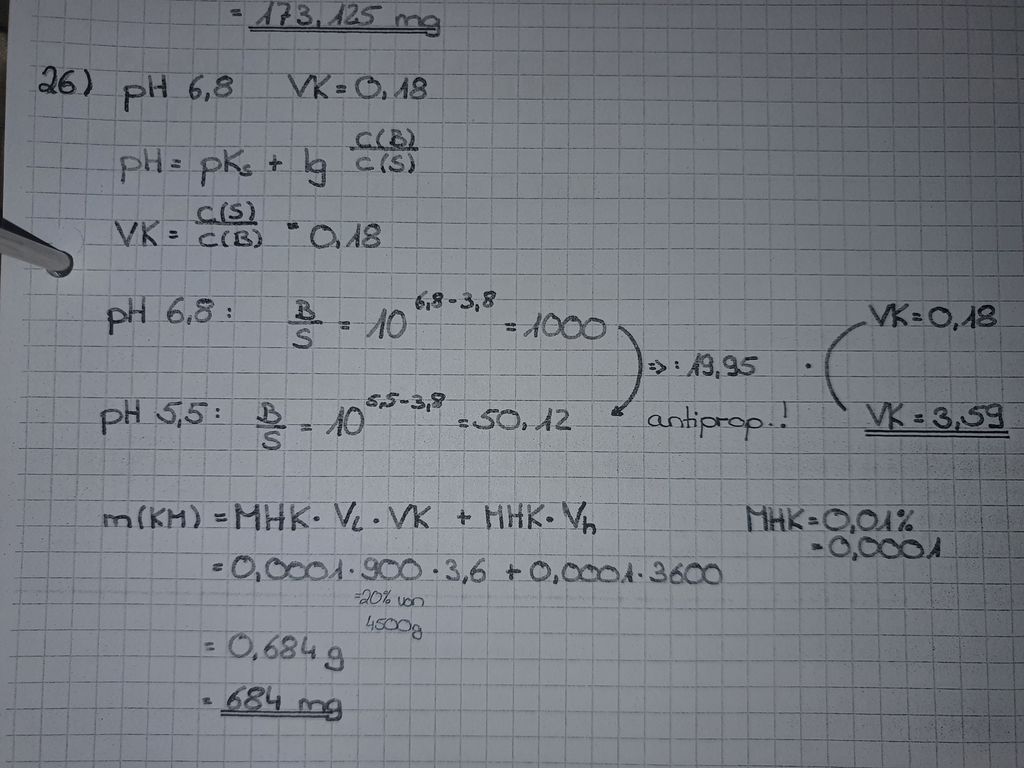 = 173,125 mg
26) pH 6,8 VK = 0,18
pH = pKs + lg c(B)/c(S)
VK = c(S)/c(B) = 0,18
pH 6,8 : B/S = 10^6,8-3,8 = 1000 VK = 0,18
⇒ : 19,95 ·
pH 5,5 : B/S = 10^5,5-3,8 = 50,12 antiprop.! VK = 3,59
m(KM) = MHK · VL · VK + MHK · Vh MHK = 0,01%
= 0,0001
= 0,0001 · 900 · 3,6 + 0,0001 · 3600
=20% von
4500g
= 0,684 g
= 684 mg